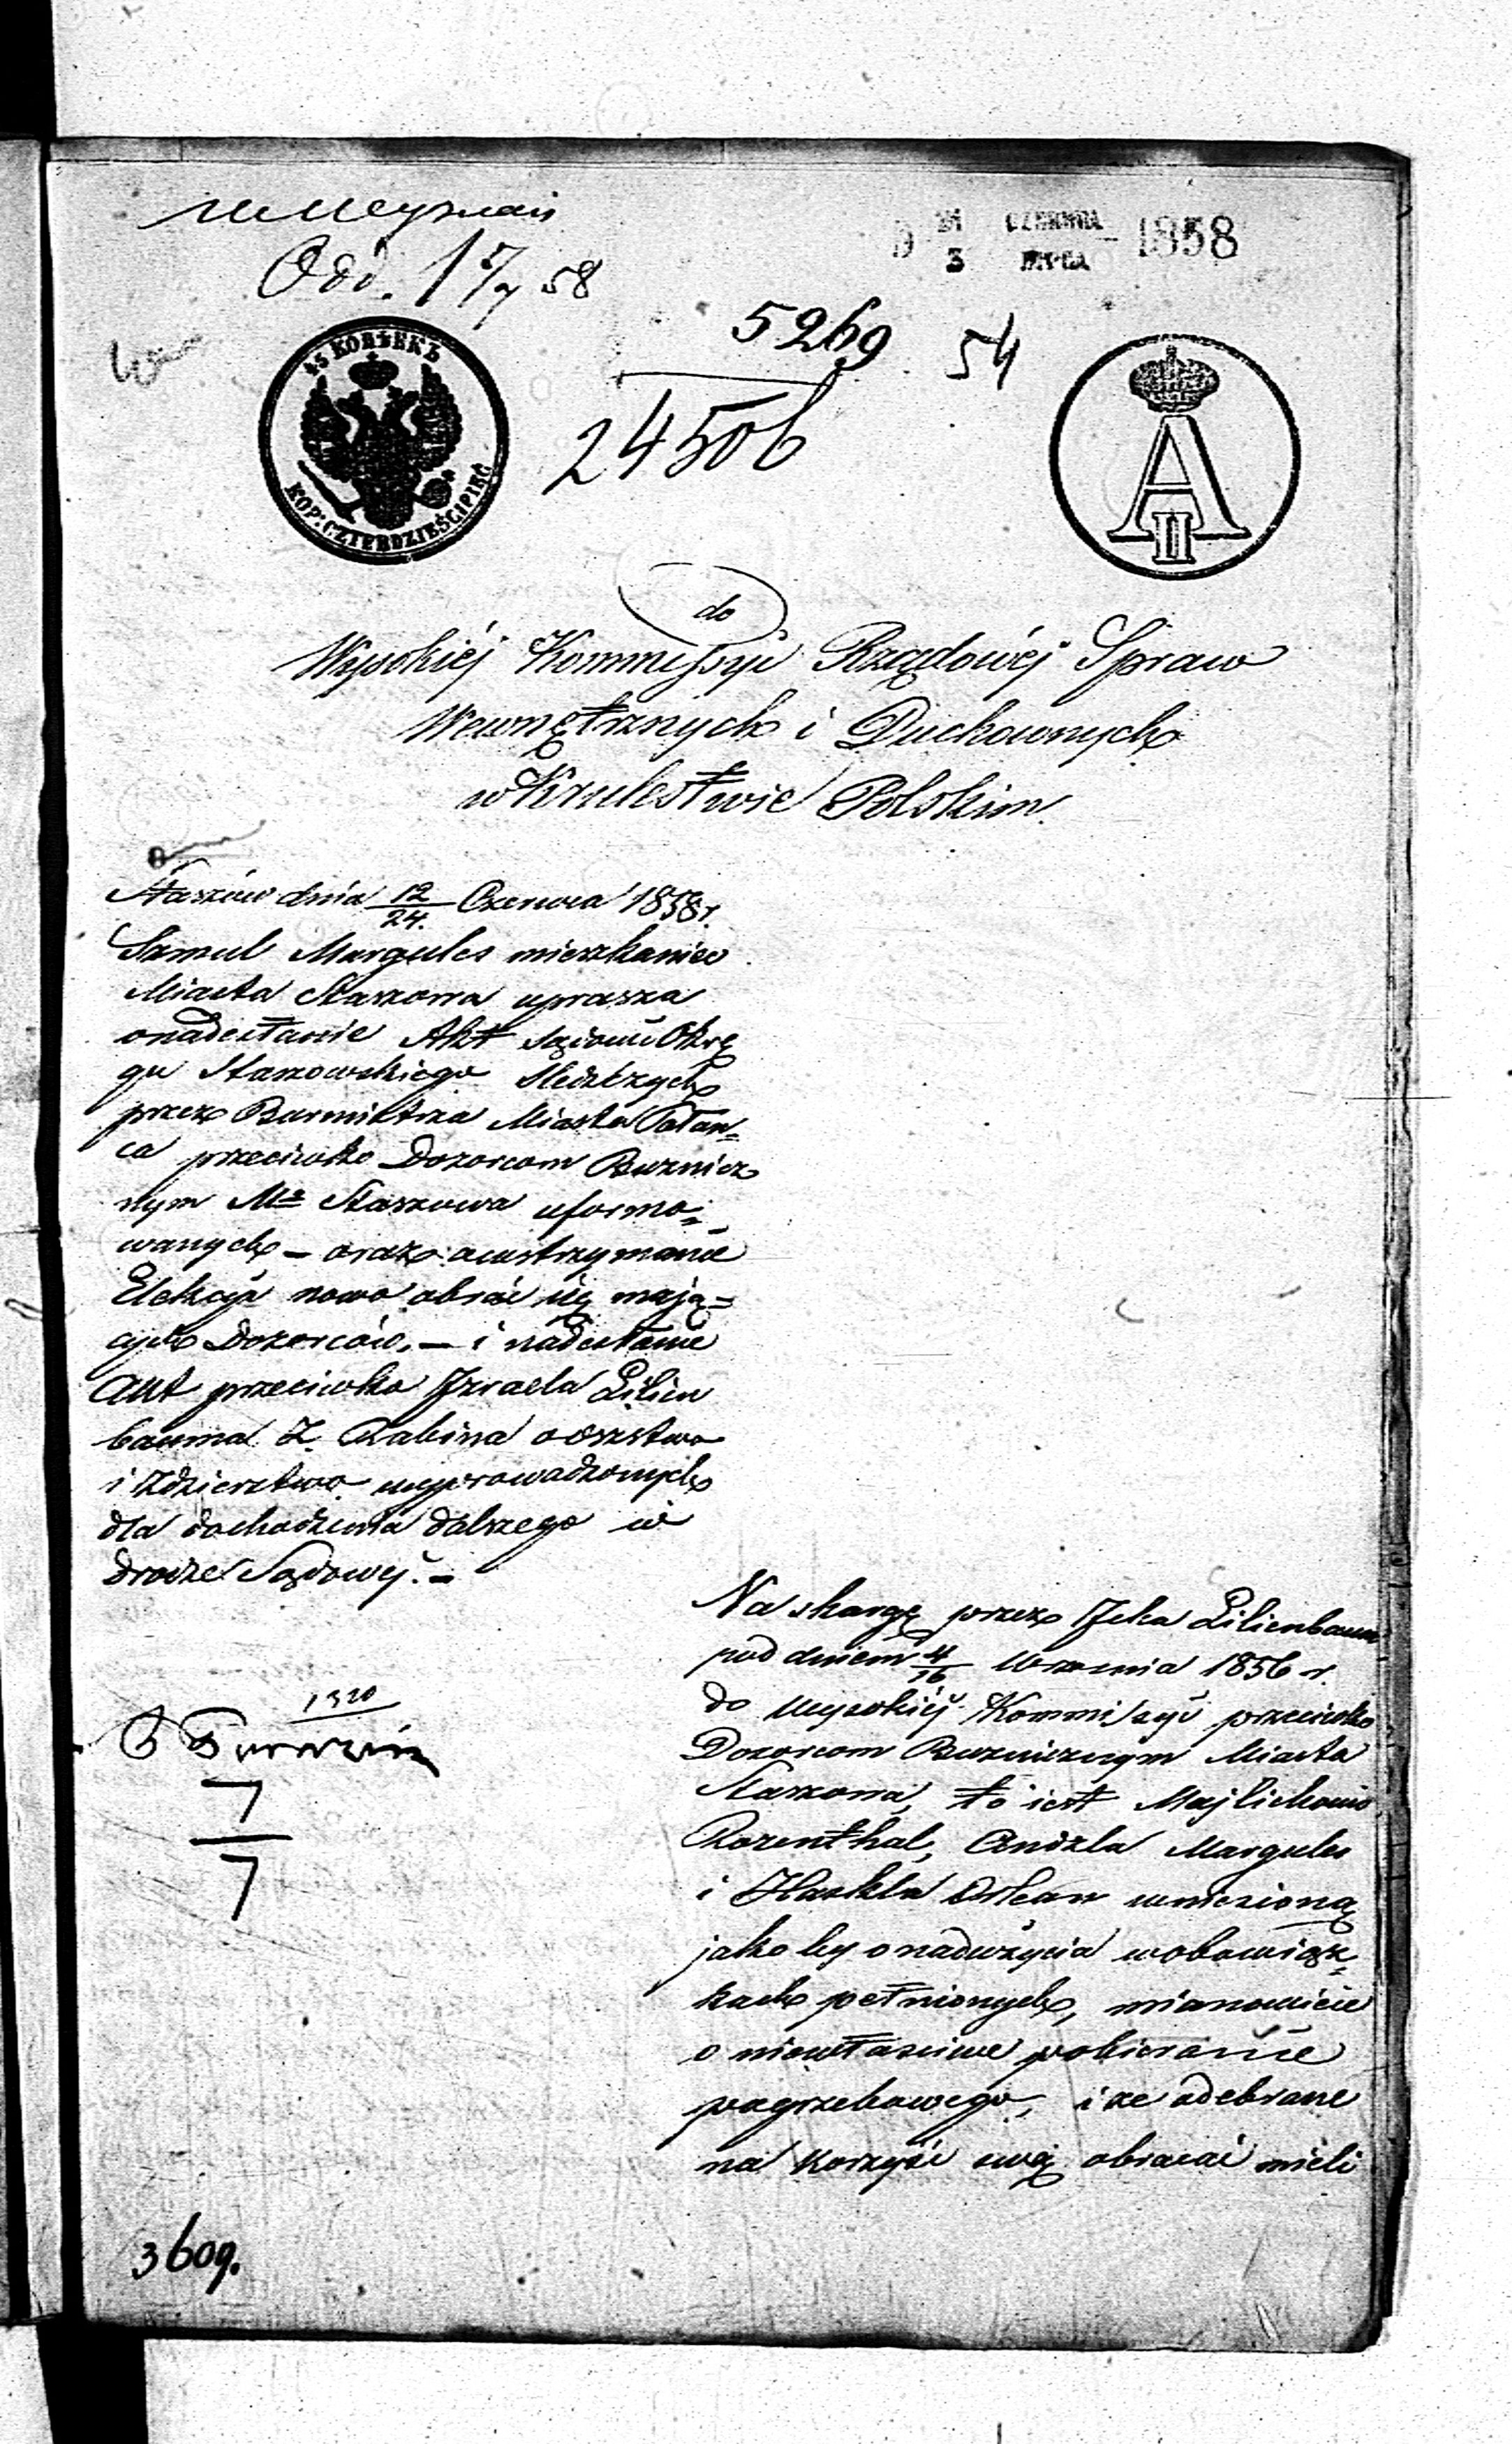 Odd. 1 7/7 58
21 CZERWCA
3 LIPCA
1858
5269
54
24506
45 КОПѢЕКЪ
KOP: CZTERDZIEŚCI PIĘĆ
A II
do
Wysokiéj Kommissyi Rządowéj Spraw
Wewnętrznych i Duchownych
w Krulestwie Polskim.
Staszów dnia 12/24. Czerwca 1858 r.
Szmul Margules mieszkaniec
Miasta Staszowa uprasza
o nadesłanie Akt Sądowi Okrę
gu Staszowskiego Sledczych
przez Burmistrza Miasta Połań=
ca przeciwko Dozorcom Buznicz
nym Mta Staszowa uformo=
wanych – oraz o wstrzymanie
Elekcyi nowo obrać się mają=
cych Dozorców. – i nadesłanie
Akt przeciwko Izraela Lilien
bauma Z. Rabina o oszstwo
i zdzierztwo wyprowadzonych
dla dochodzenia dalszego w
drodze Sądowej. –
Na skargę przez Icka Lilienbaum
pod dniem 4/16 Wrzesnia 1856 r.
do Wysokiéj Kommissyi przeciwko
Dozorcom Buznicznym Miasta
Staszowa, to iest Majlichowi
Rozenthal, Andzla Margules
i Haskla wniezioną
jako by o nadużycia w obowiąz=
kach pełnionych, mianowicie
o niewłasciwe pobieranie
pogrzebowego, i ze odebrane
na korzyść swą obracać mieli
1320
7
7
3609.